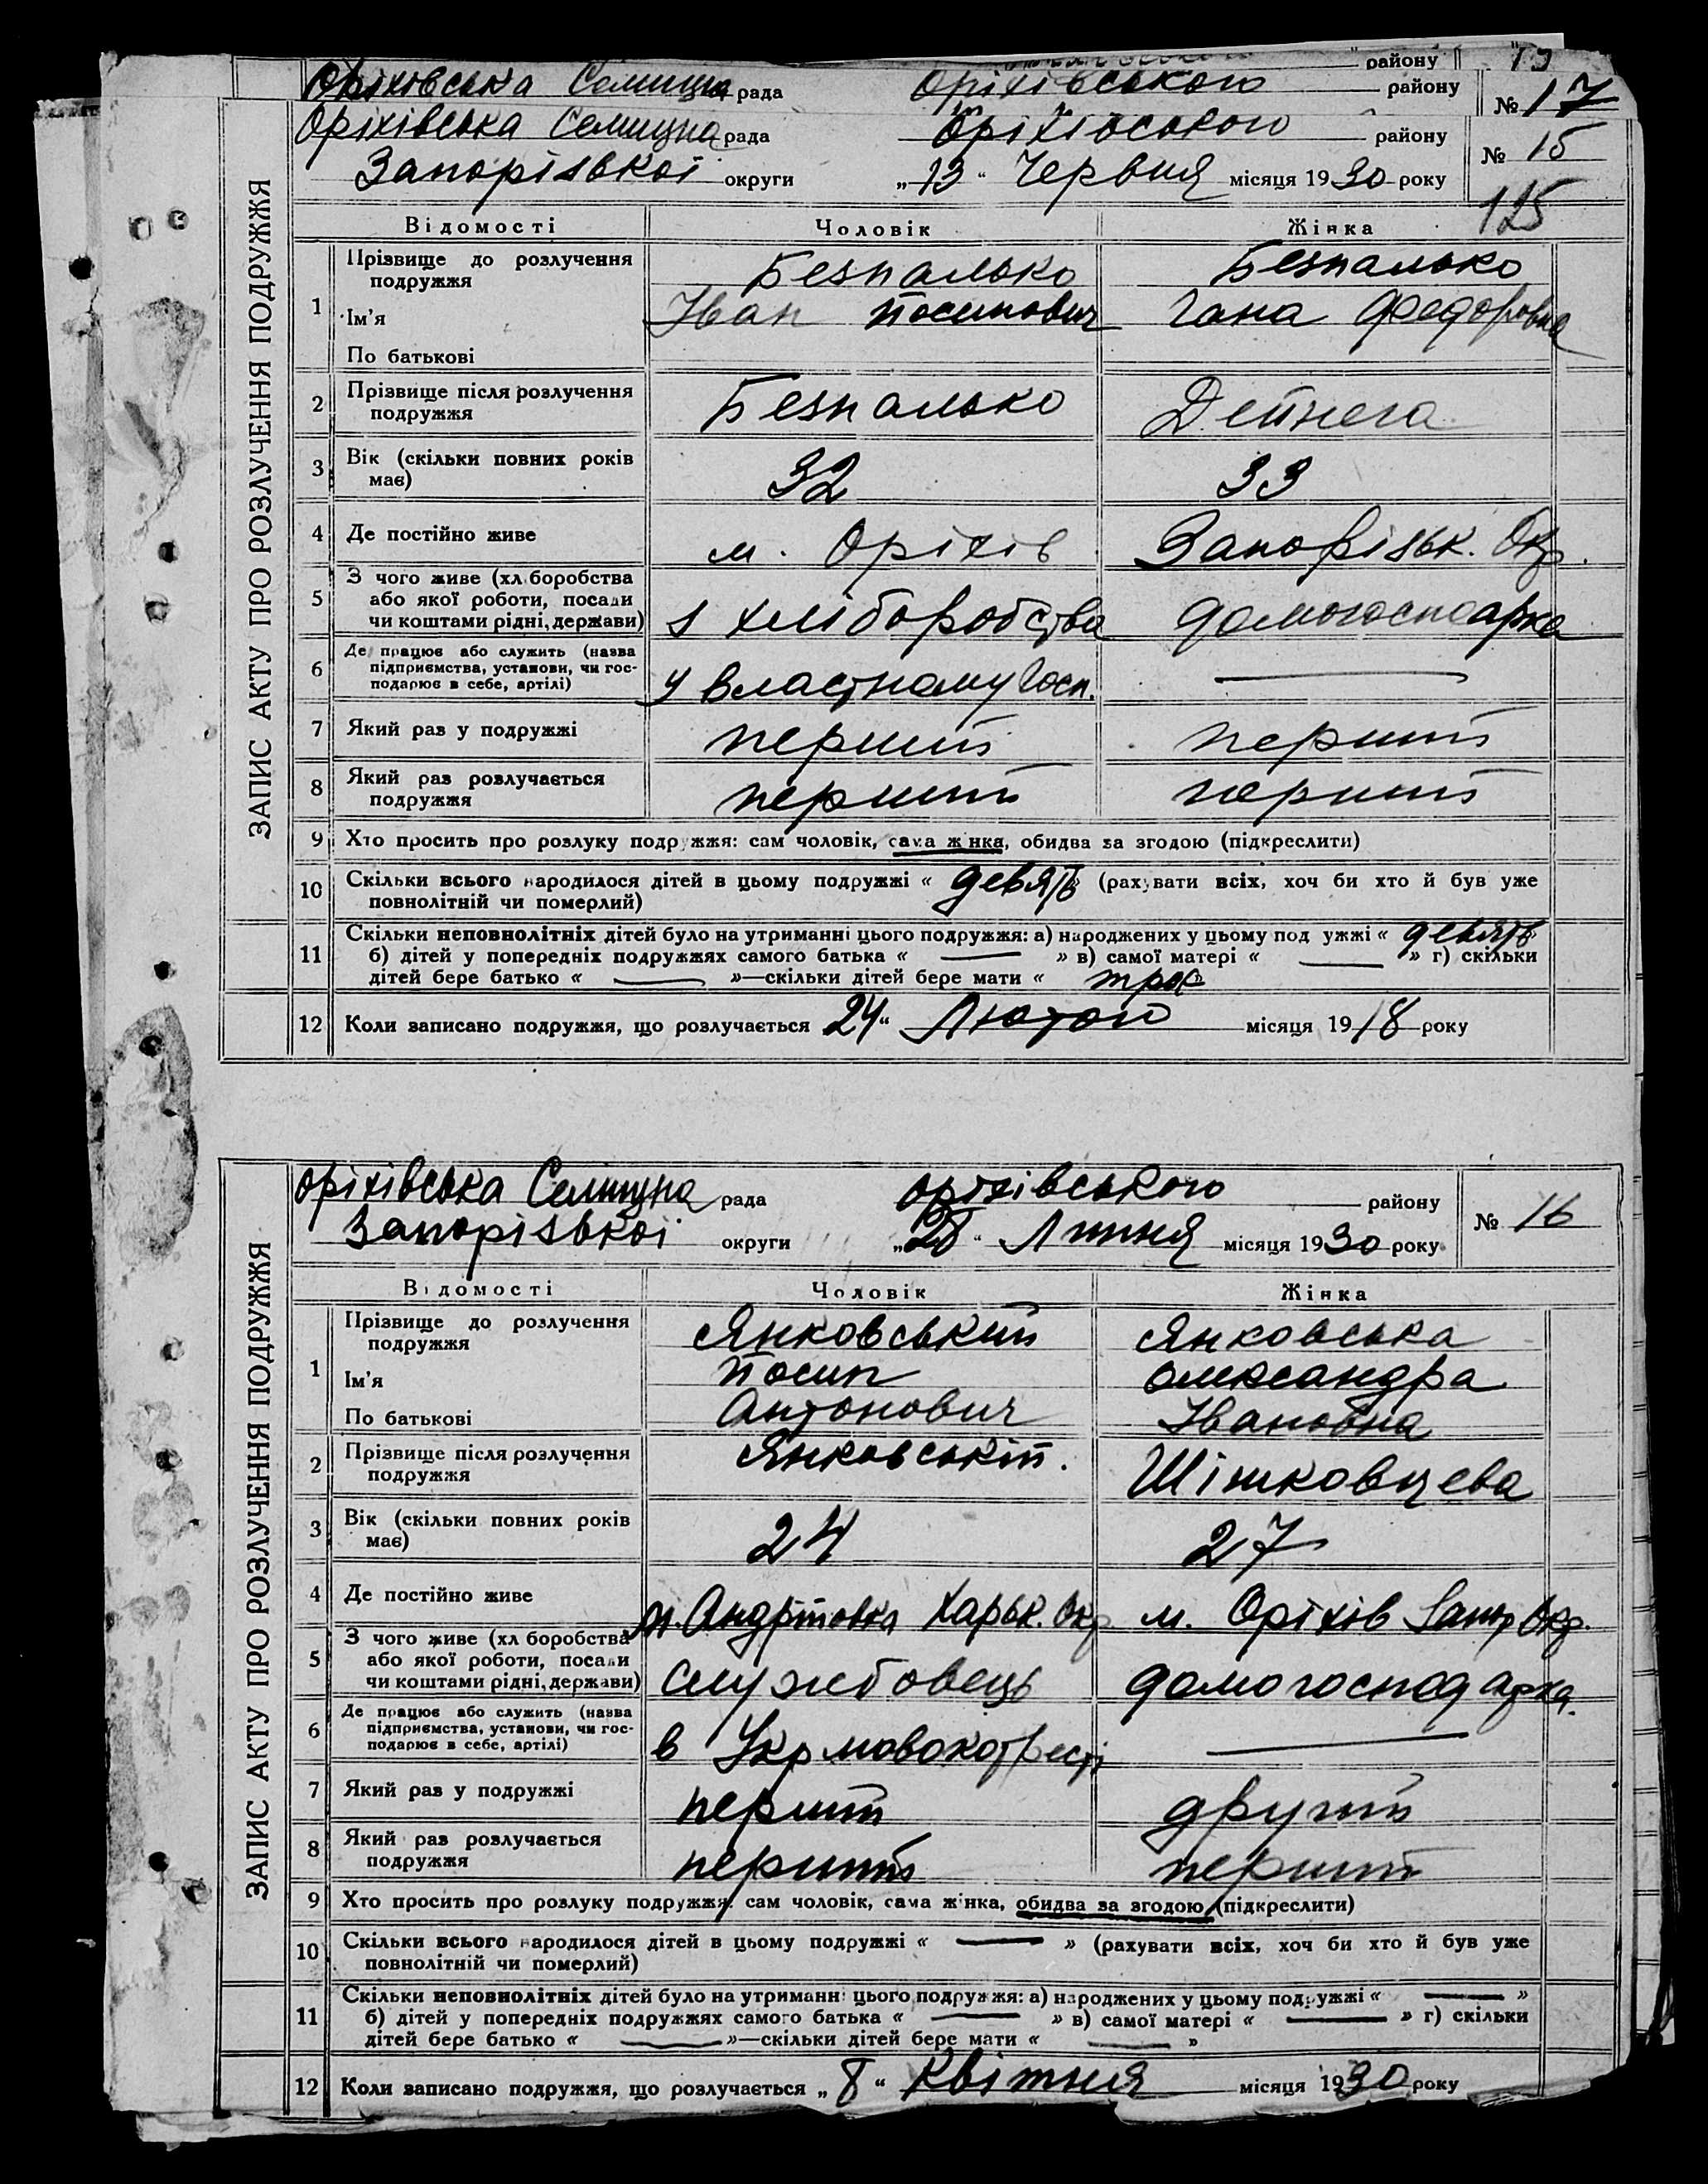 району 13
Оріхівська Селищна рада Оріхівського району № 17
Оріхівська Селищна рада Оріхівського району № 15
Запорізької округи „13“ Червня місяця 1930 року
125
ЗАПИС АКТУ ПРО РОЗЛУЧЕННЯ ПОДРУЖЖЯ
Відомості Чоловік Жінка
1 Прізвище до розлучення подружжя Безпалько Безпалько
Ім'я Іван Йосипович Гана Федоровна
По батькові
2 Прізвище після розлучення
подружжя Безпалько Дейнега
3 Вік (скільки повних років
має) 32 33
4 Де постійно живе м. Оріхів Запорізьк. Окр.
5 З чого живе (хл боробства
або якої роботи, посади
чи коштами рідні, держави) з хліборобства домогоспоарка
6 Де працює або служить (назва
підприємства, установи, чи гос-
подарює в себе, артілі) у властному госп. —
7 Який раз у подружжі перший перший
8 Який раз розлучається
подружжя перший перший
9 Хто просить про розлуку подружжя: сам чоловік, сама жінка, обидва за згодою (підкреслити)
10 Скільки всього народилося дітей в цьому подружжі « девять » (рахувати всіх, хоч би хто й був уже
повнолітній чи померлий)
11 Скільки неповнолітніх дітей було на утриманні цього подружжя: а) народжених у цьому подружжі « девять »
б) дітей у попередніх подружжях самого батька « — » в) самої матері « — » г) скільки
дітей бере батько « — »—скільки дітей бере мати « трое
12 Коли записано подружжя, що розлучається 24“ Лютого місяця 1918 року
Оріхівська Селищна рада Оріхівського району № 16
Запорізької округи „28“ Липня місяця 1930 року
ЗАПИС АКТУ ПРО РОЗЛУЧЕННЯ ПОДРУЖЖЯ
Відомості Чоловік Жінка
1 Прізвище до розлучення
подружжя Янковський Янковська
Ім'я Йосип Олександра
По батькові Антонович Івановна
2 Прізвище після розлучення
подружжя Янковській. Шішковцева
3 Вік (скільки повних років
має) 24 27
4 Де постійно живе м. Андрійовка Харьк. Окр м. Оріхів Запор Окр.
5 З чого живе (хл боробства
або якої роботи, посади
чи коштами рідні, держави) службовець домогосподарка.
6 Де працює або служить (назва
підприємства, установи, чи гос-
подарює в себе, артілі) в —
7 Який раз у подружжі перший другий
8 Який раз розлучається
подружжя перший перший
9 Хто просить про розлуку подружжя: сам чоловік, сама жінка, обидва за згодою (підкреслити)
10 Скільки всього народилося дітей в цьому подружжі « — » (рахувати всіх, хоч би хто й був уже
повнолітній чи померлий)
11 Скільки неповнолітніх дітей було на утриманні цього подружжя: а) народжених у цьому подружжі « — »
б) дітей у попередніх подружжях самого батька « — » в) самої матері « — » г) скільки
дітей бере батько « — »—скільки дітей бере мати « — »
12 Коли записано подружжя, що розлучається „8“ Квітня місяця 1930 року